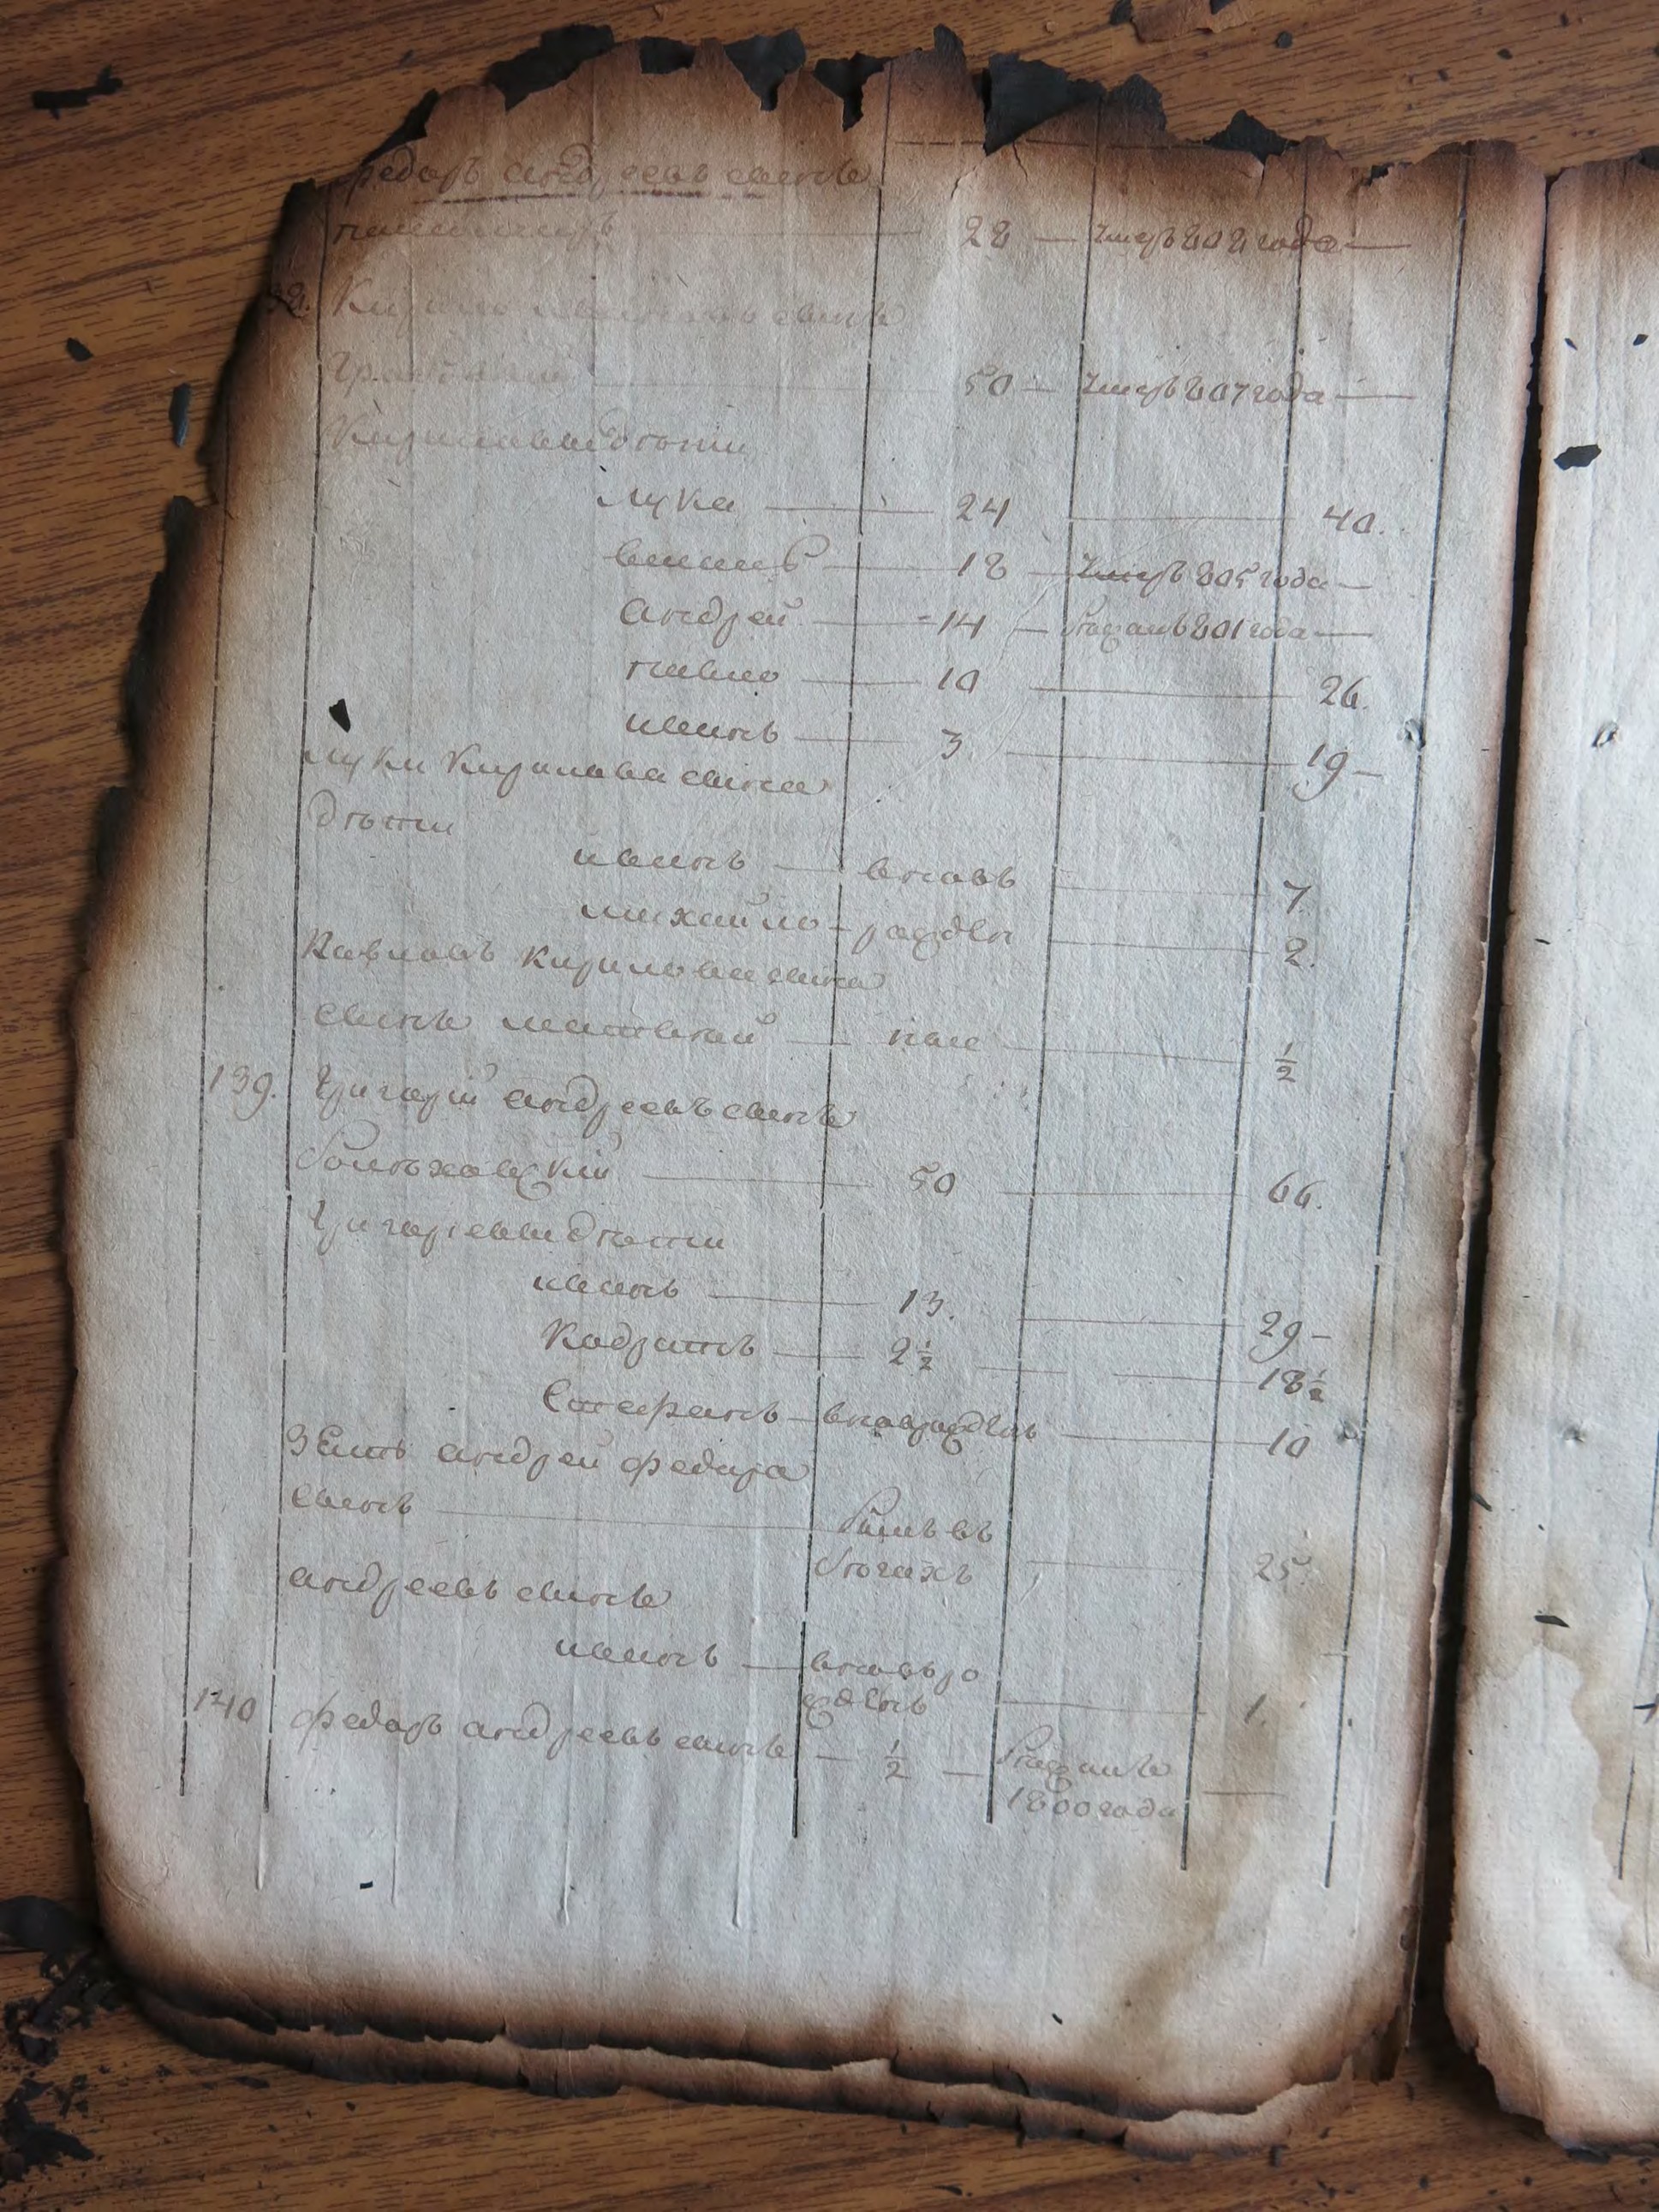 Федоръ андреевъ сынъ
28 — умеръ 808 года —
Кирило ивановъ сынъ
50 — умеръ 807 года —
Кириловы дѣти
лука — 24 — 40.
18 — умеръ 805 года —
андрей — 14 — 801 года —
павло — 10 — 26.
иванъ — 3 — 19 —
луки Кирилова сына
дѣти
иванъ — вновь — 7.
михайло — рожден — 2.
Павловъ Кирилова сына
сынъ матвей — 1/2
139. Григорій андреевъ сынъ
50 — 66.
Григорьевы дѣти
иванъ — 13. — 29 —
Кодратъ — 2 1/2 — 18 1/2
Стефанъ — вновь рожденъ — 10
Зять андрей федора
сынъ — былъ въ
бѣгахъ — 25.
андреевъ сынъ
иванъ — вновь ро
жденъ — 1.
140 федоръ андреевъ сынъ — 1/2 —
1800 года —